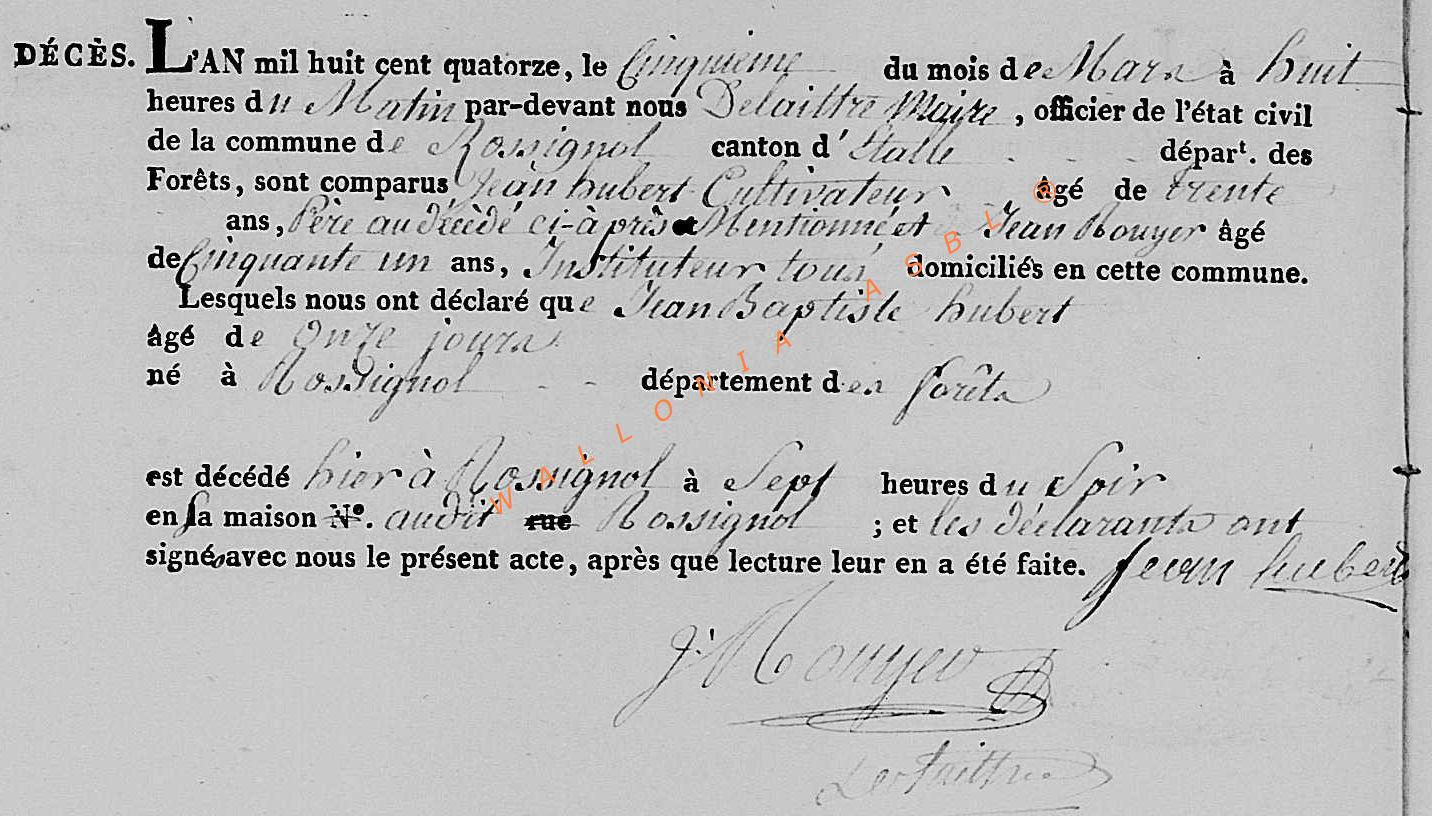 DÉCÈS. L'AN mil huit cent quatorze, le Cinquième du mois de Mars à huit
heures du Matin par-devant nous Delaittre Maire, officier de l'état civil
de la commune de Rossignol canton d'Etalle départ. des
Forêts, sont comparus Jean hubert Cultivateur, âgé de trente
ans, Père au décèdé ci-à près Mentionné et Jean Rouyer âgé
de Cinquante un ans, Instituteur tous domiciliés en cette commune.
Lesquels nous ont déclaré que Jean Baptiste hubert
âgé de Onze jours
né à Rossignol département des forêts
est décédé hier à Rossignol à Sept heures du Soir
en sa maison N°. audit rue Rossignol ; et les déclarants ont
signés avec nous le présent acte, après que lecture leur en a été faite. Jean hubert
J: Rouyer
Delaittre
@ WALLONIA ASBL